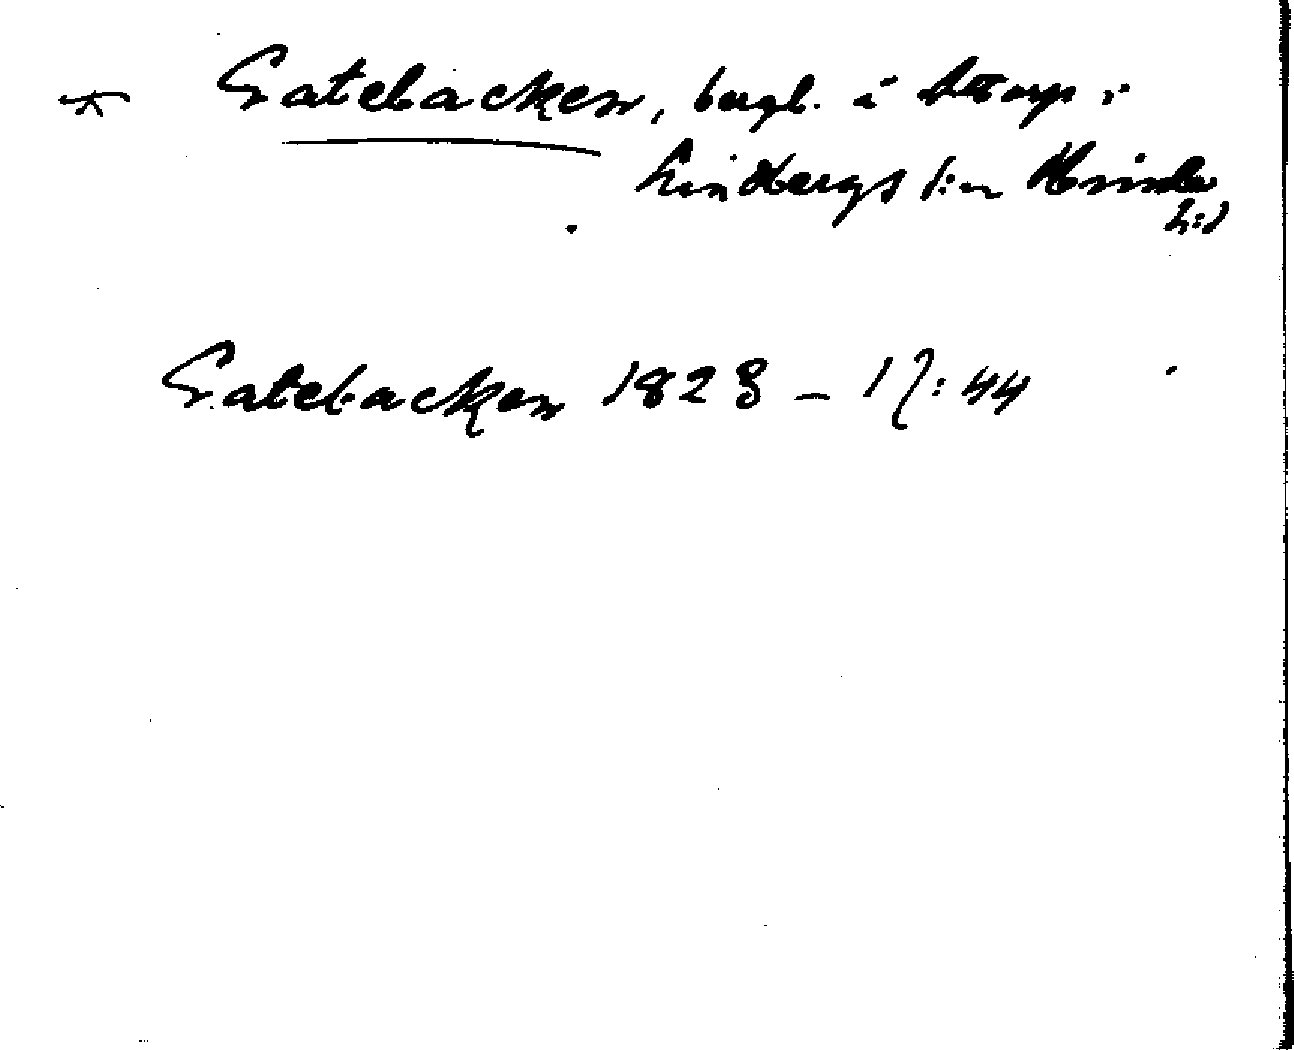 * Gatebacken, bergl. i Attorp i
Lindbergs s:n Himle
h:d
Gatebacken 1828 – 17:44